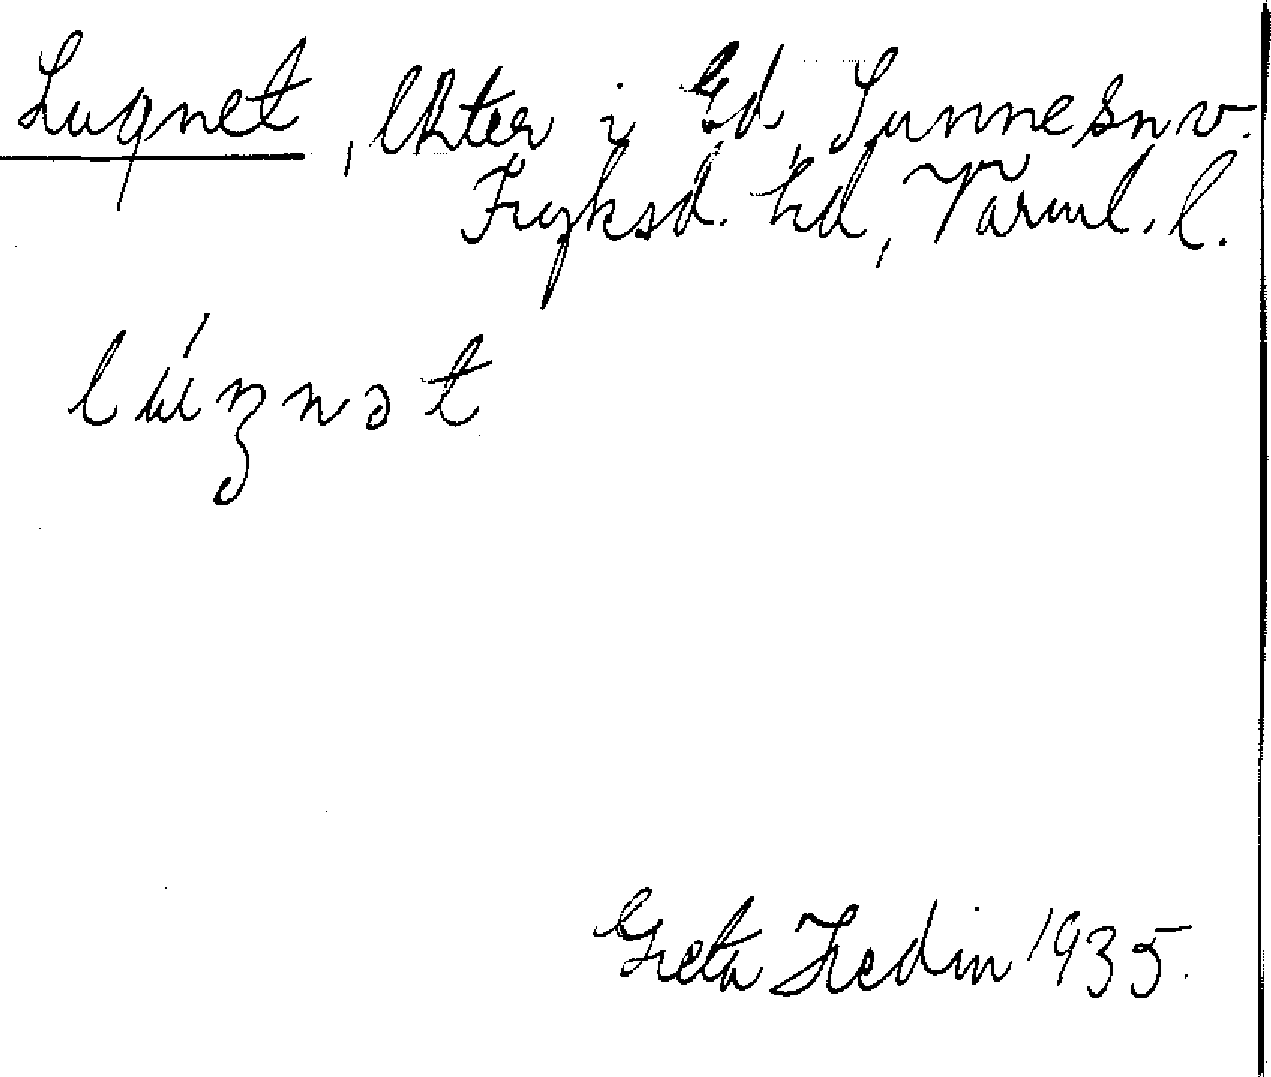 Lugnet, lht er i Ed, Sunne sn v.
Fryksd. hd, Värml. l.
lúŋnət
Greta Hedin 1935.